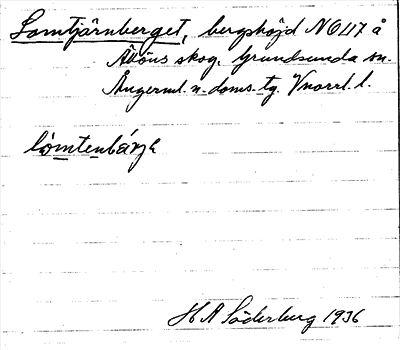 Lomtjärnberget, bergshöjd NO 117 å
skog. Grundsunda sn.
Ångerml. n. doms. tg. Vnorrl. l.
lòmtenbárje
H A Söderberg 1936